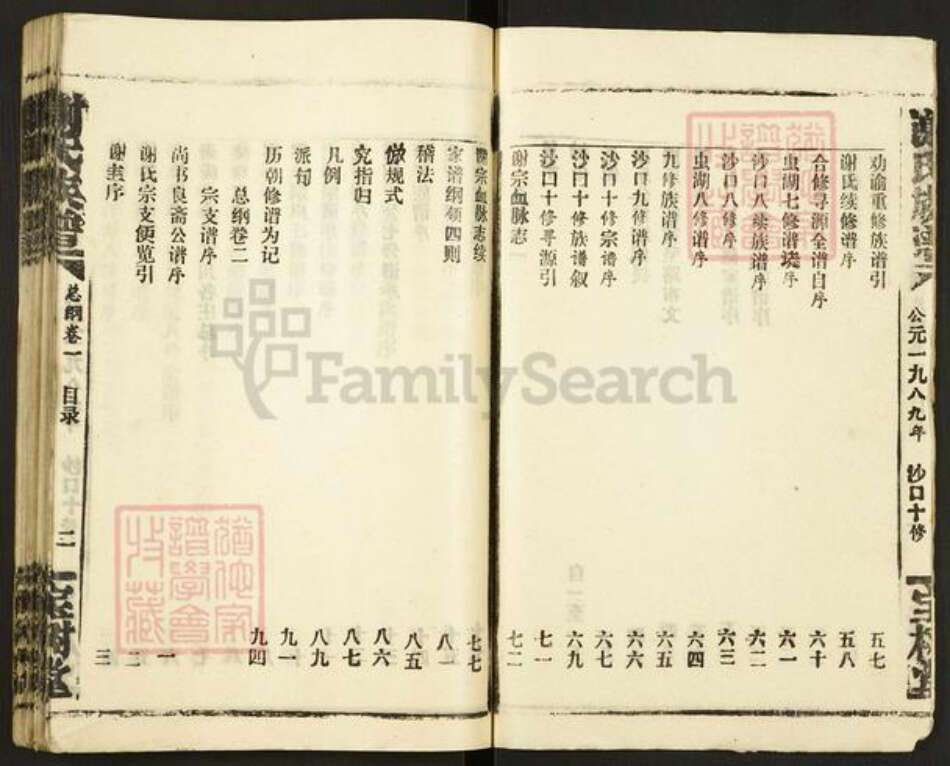 谢氏族谱
公元一九八九年 沙口十修
宝树堂
劝谕重修族谱引 五七
谢氏续修谱序 五八
合修寻源全谱自序 六十
虫湖七修谱序 六一
沙口八续族谱序 六二
沙口八修序 六三
虫湖八修谱序 六四
九修族谱序 六五
沙口九修谱序 六六
沙口十修宗谱序 六七
沙口十修族谱叙 六九
沙口十修寻源引 七一
谢宗血脉志 七二
谢宗血脉志续 七七
家谱纲领四则 八一
稽法 八五
仿规式 八六
究指归 八七
凡例 八九
派句 九一
历朝修谱为记 九四
总纲卷二
宗支谱序
尚书良斋公谱序 一
谢氏宗支便览引 二
谢圭序 三
谢氏族谱
总纲卷一 目录 二
宝树堂
FamilySearch
谱学会
收藏